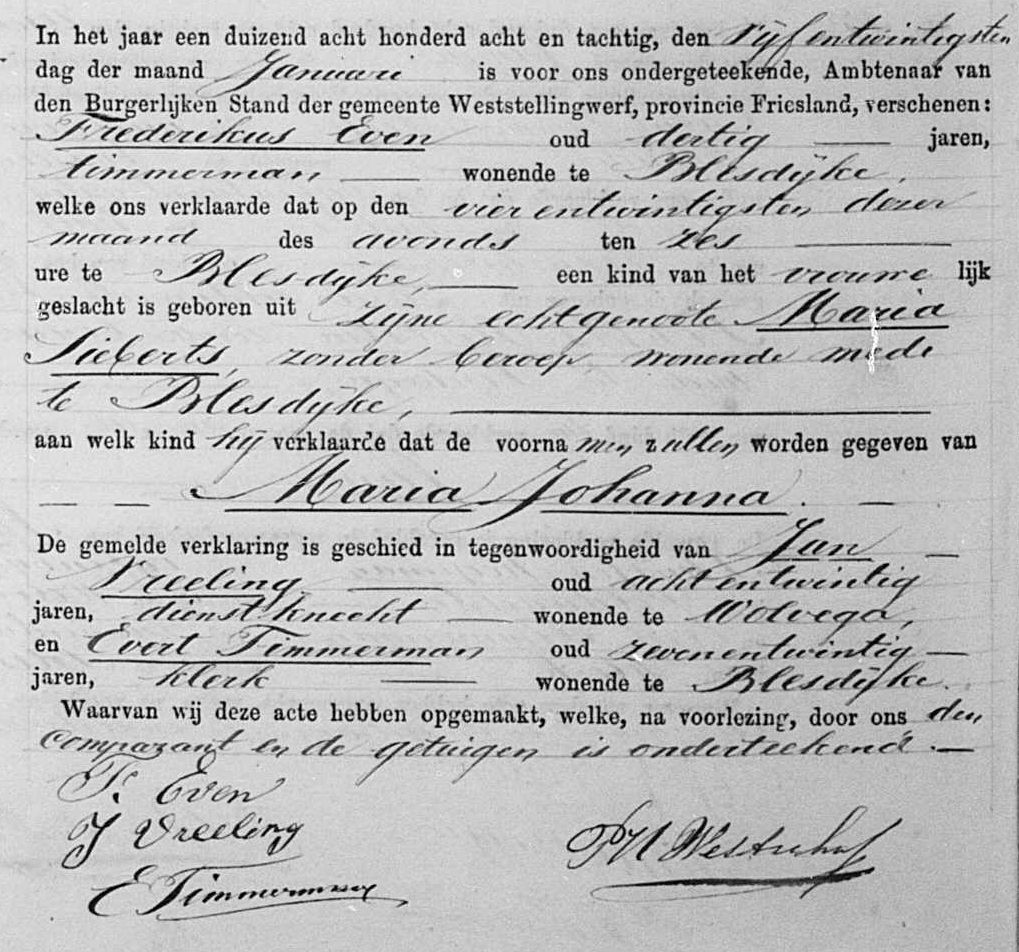 In het jaar een duizend acht honderd acht en tachtig, den vijfentwintigsten
dag der maand Januari is voor ons ondergeteekende, Ambtenaar van
den Burgerlijken Stand der gemeente Weststellingwerf, provincie Friesland, verschenen:
Frederikus Even oud dertig jaren,
timmerman wonende te Blesdijke,
welke ons verklaarde dat op den vierentwintigsten dezer
maand des avonds ten zes
ure te Blesdijke, een kind van het vrouwe lijk
geslacht is geboren uit zijne echtgenoote Maria
Sieberts, zonder beroep, wonende mede
te Blesdijke,
aan welk kind hij verklaarde dat de voorna men zullen worden gegeven van
Maria Johanna.
De gemelde verklaring is geschied in tegenwoordigheid van Jan
Vreeling, oud achtentwintig
jaren, dienstknecht wonende te Wolvega,
en Evert Timmerman oud zevenentwintig
jaren, klerk wonende te Blesdijke.
Waarvan wij deze acte hebben opgemaakt, welke, na voorlezing, door ons den
comparant en de getuigen is onderteekend.
F. Even
J Vreeling
E Timmerman